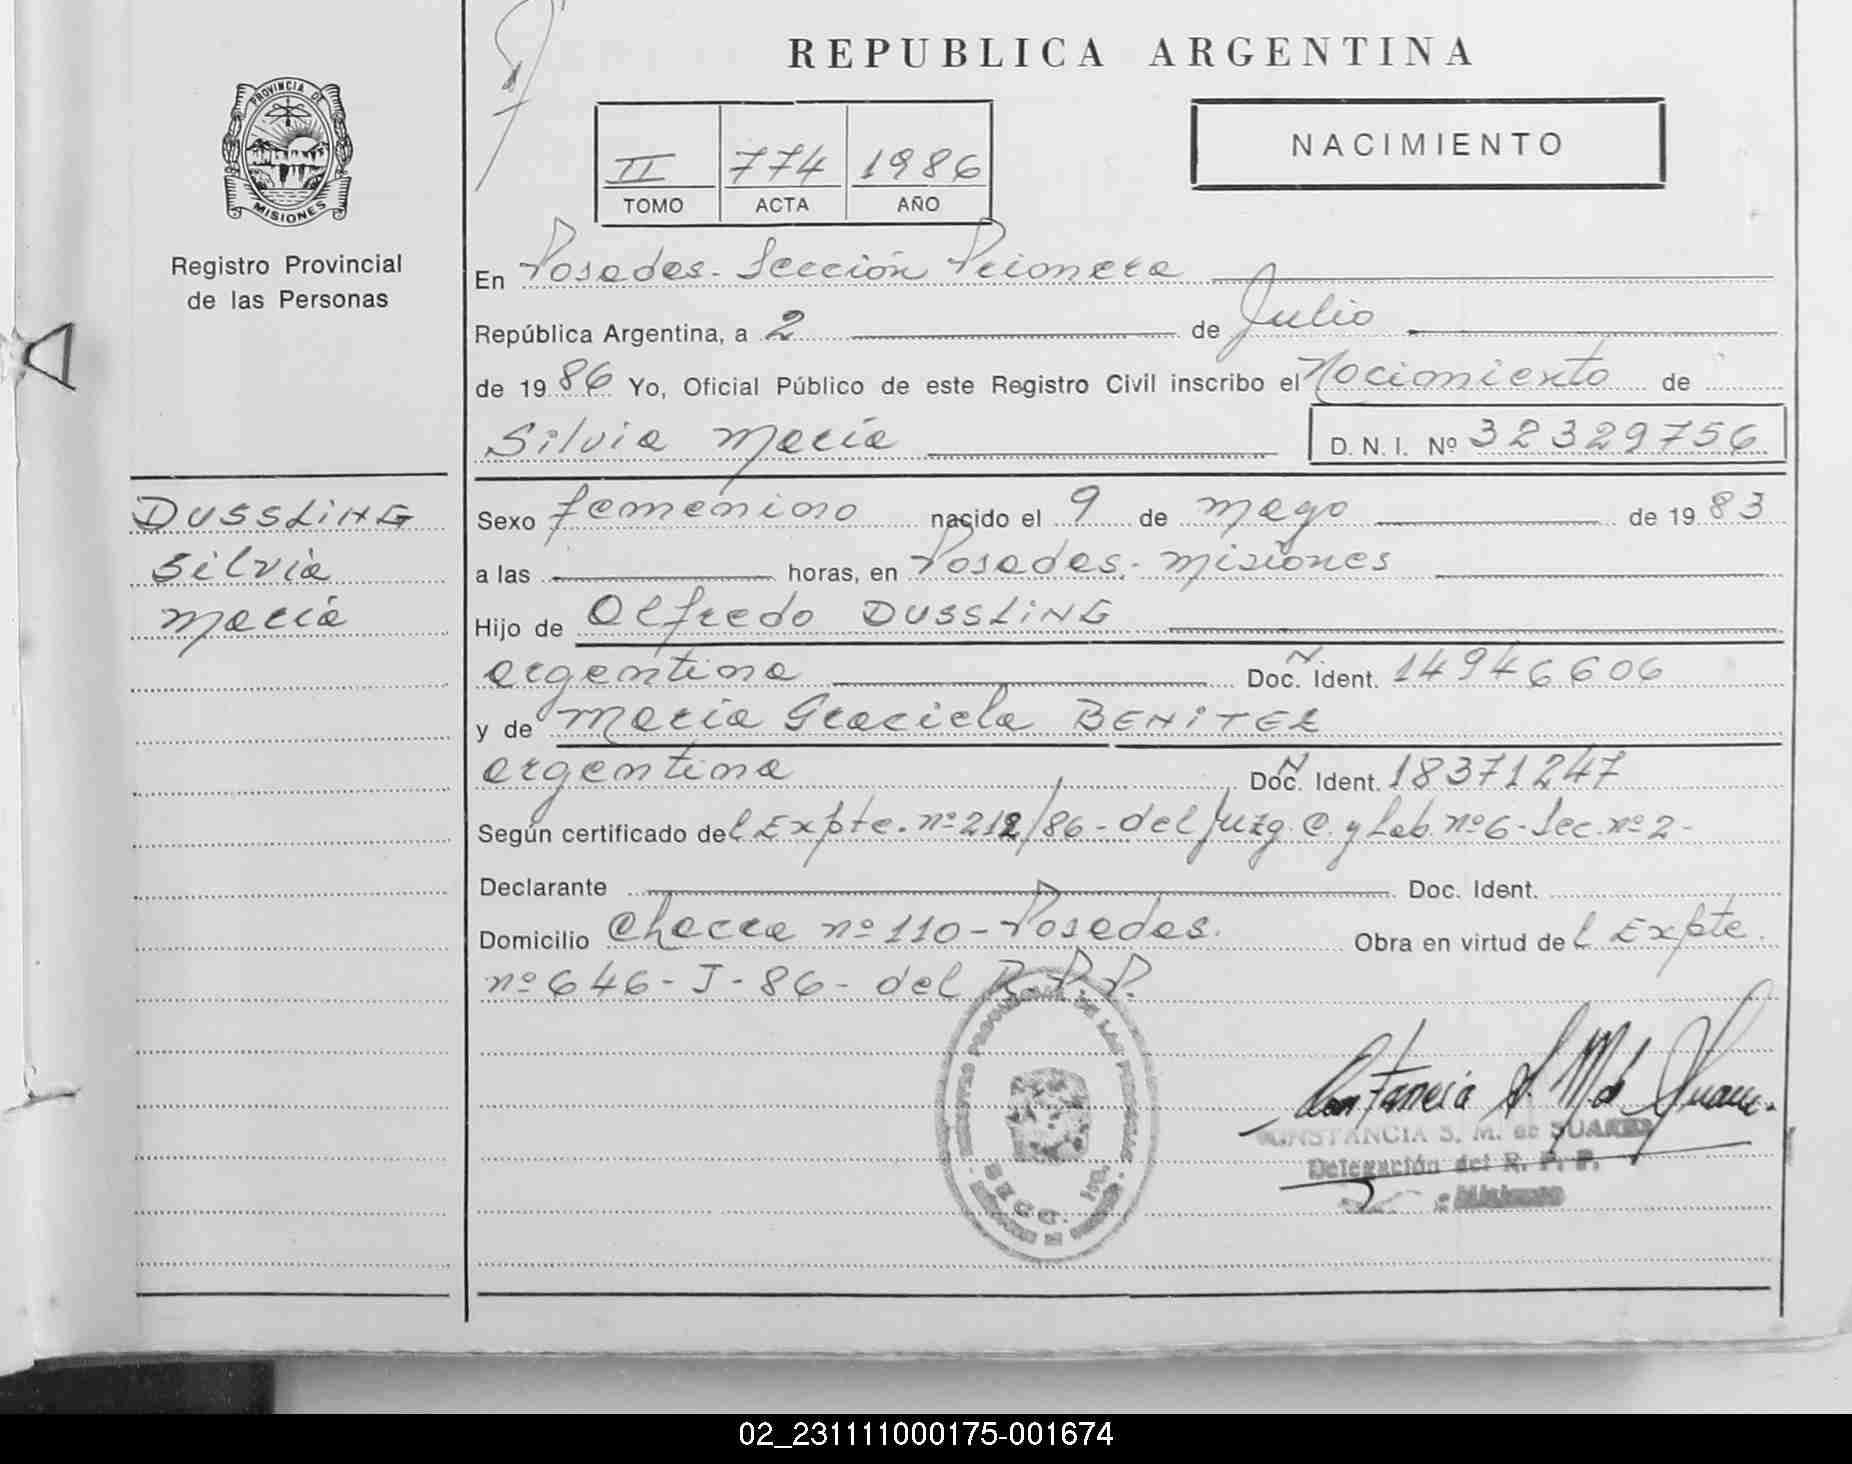 REPUBLICA ARGENTINA
PROVINCIA DE
MISIONES
Registro Provincial
de las Personas
II 774 1986
TOMO ACTA AÑO
NACIMIENTO
En Posadas - Sección Primera
República Argentina, a 2 de Julio
de 1986 Yo, Oficial Público de este Registro Civil inscribo el Nacimiento de
Silvia María
D. N. I. Nº 32329756
DUSSLING
Silvia
María
Sexo femenino nacido el 9 de mayo de 1983
a las horas, en Posadas - misiones
Hijo de Alfredo DUSSLING
argentino Doc. Ident. 14946606
y de María Graciela BENITEZ
argentina Doc. Ident. 18371247
Según certificado del Expte. nº 212/86 - del Juzg. C. y Lab. nº 6 - Sec. nº 2 -
Declarante Doc. Ident.
Domicilio Chacra nº 110 - Posadas. Obra en virtud del Expte.
nº 646 - J - 86 - del R. P. P.
Constancia S. M. de Suarez
CONSTANCIA S. M. de SUAREZ
Delegación del R. P. P.
Misiones
SECC. 1ra.
02_231111000175-001674